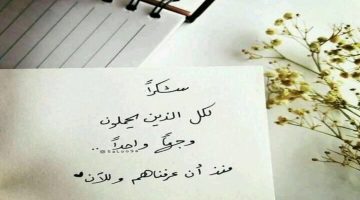 شكراً
لكل الذين يحملون
وجهاً واحداً ..
منذ أن عرفناهم وللآن